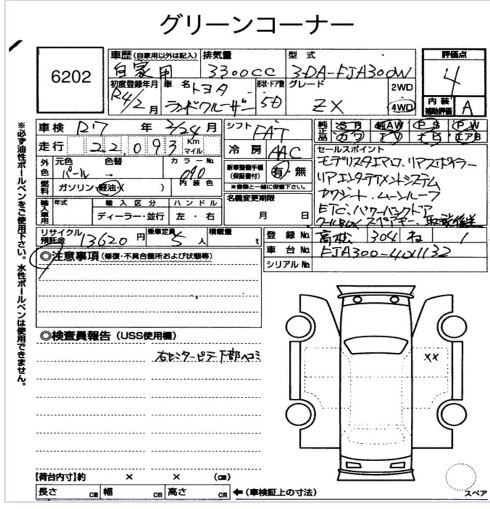 グリーンコーナー
6202
車歴 (自家用以外は記入)
自家用
排気量
3300cc
型式
3DA-FJA300W
評価点
4
初度登録年月
R4/2月
車名
トヨタ
ランドクルーザー
形状・ドア数
5D
グレード
ZX
2WD
4WD
内装補助評価
A
車検
R7年 2/24月日
シフト
FAT
純正品
走行
22,093
Km
マイル
冷房
AAC
セールスポイント
モデリスタエアロ、リアスポイラー
リアエンタテイメントシステム
サンルーフ
ETC、パワーバックドア
クールBOX
外色
元色
パール
色替
カラーNo.
090
内装色
燃料
ガソリン・軽油・( )
新車整備手帳
(保証書付)
有・無
※書類と一緒に保管下さい。
輸入車用
年式
輸入区分
ディーラー・並行
ハンドル
左・右
名義変更期限
月 日
リサイクル預託金
13620円
乗車定員
5人
積載量
t
登録No.
高松 304 ね 1
車台No.
FJA300-4011132
シリアルNo.
◎注意事項(修復・不具合箇所および状態等)
◎検査員報告(USS使用欄)
右センターピラー下部ヘコミ
××
スペア
[荷台内寸]約 × × (cm)
長さ cm 幅 cm 高さ cm ←(車検証上の寸法)
※必ず油性ボールペンをご使用下さい。水性ボールペンは使用できません。